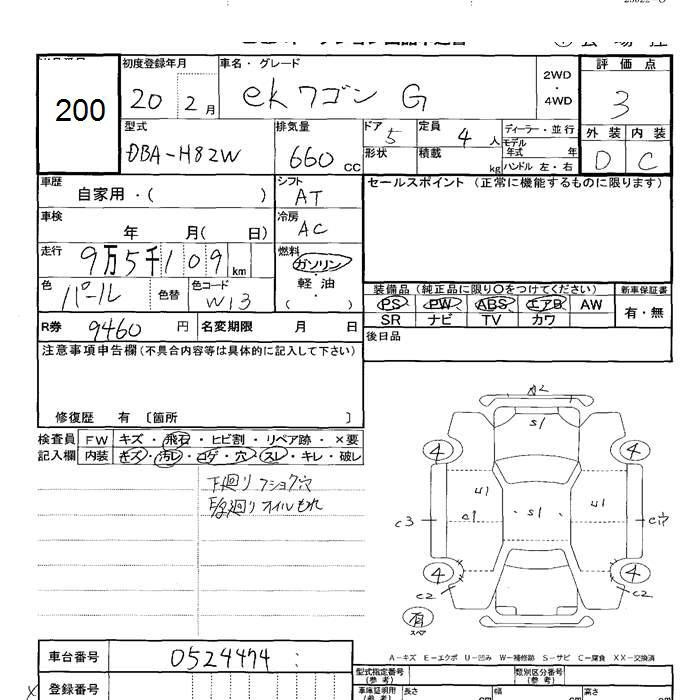 200
初度登録年月 20 2月
車名・グレード ekワゴン G
2WD・4WD
評価点 3
外装 内装
D C
型式 DBA-H82W
排気量 660 CC
ドア 5
形状
定員 4人
積載 kg
ディーラー・並行
モデル年式 年
ハンドル 左・右
車歴 自家用・( )
シフト AT
セールスポイント (正常に機能するものに限ります)
車検 年 月( 日)
冷房 AC
走行 9万5千109km
燃料 ガソリン・軽油・( )
色 パール
色替
色コード W13
装備品 (純正品に限り○をつけてください)
新車保証書
PS PW ABS エアB AW
有・無
SR ナビ TV カワ
R券 9460円
名変期限 月 日
後日品
注意事項申告欄(不具合内容等は具体的に記入して下さい)
修復歴 有 〔箇所 〕
検査員記入欄
FW キズ・飛石・ヒビ割・リペア跡・×要
内装 キズ・汚レ・コゲ・穴・スレ・キレ・破レ
下廻り
オイルもれ
A2
S1
4 4
U1 U1
C1 S1
C3
4 4
C2 C2
有
スペア
A-キズ E-エクボ U-凹み W-補修跡 S-サビ C-腐食 XX-交換済
車台番号 0524474
型式指定番号(参考)
類別区分番号(参考)
登録番号
車庫証明用(参考)
長さ cm
幅 cm
高さ cm